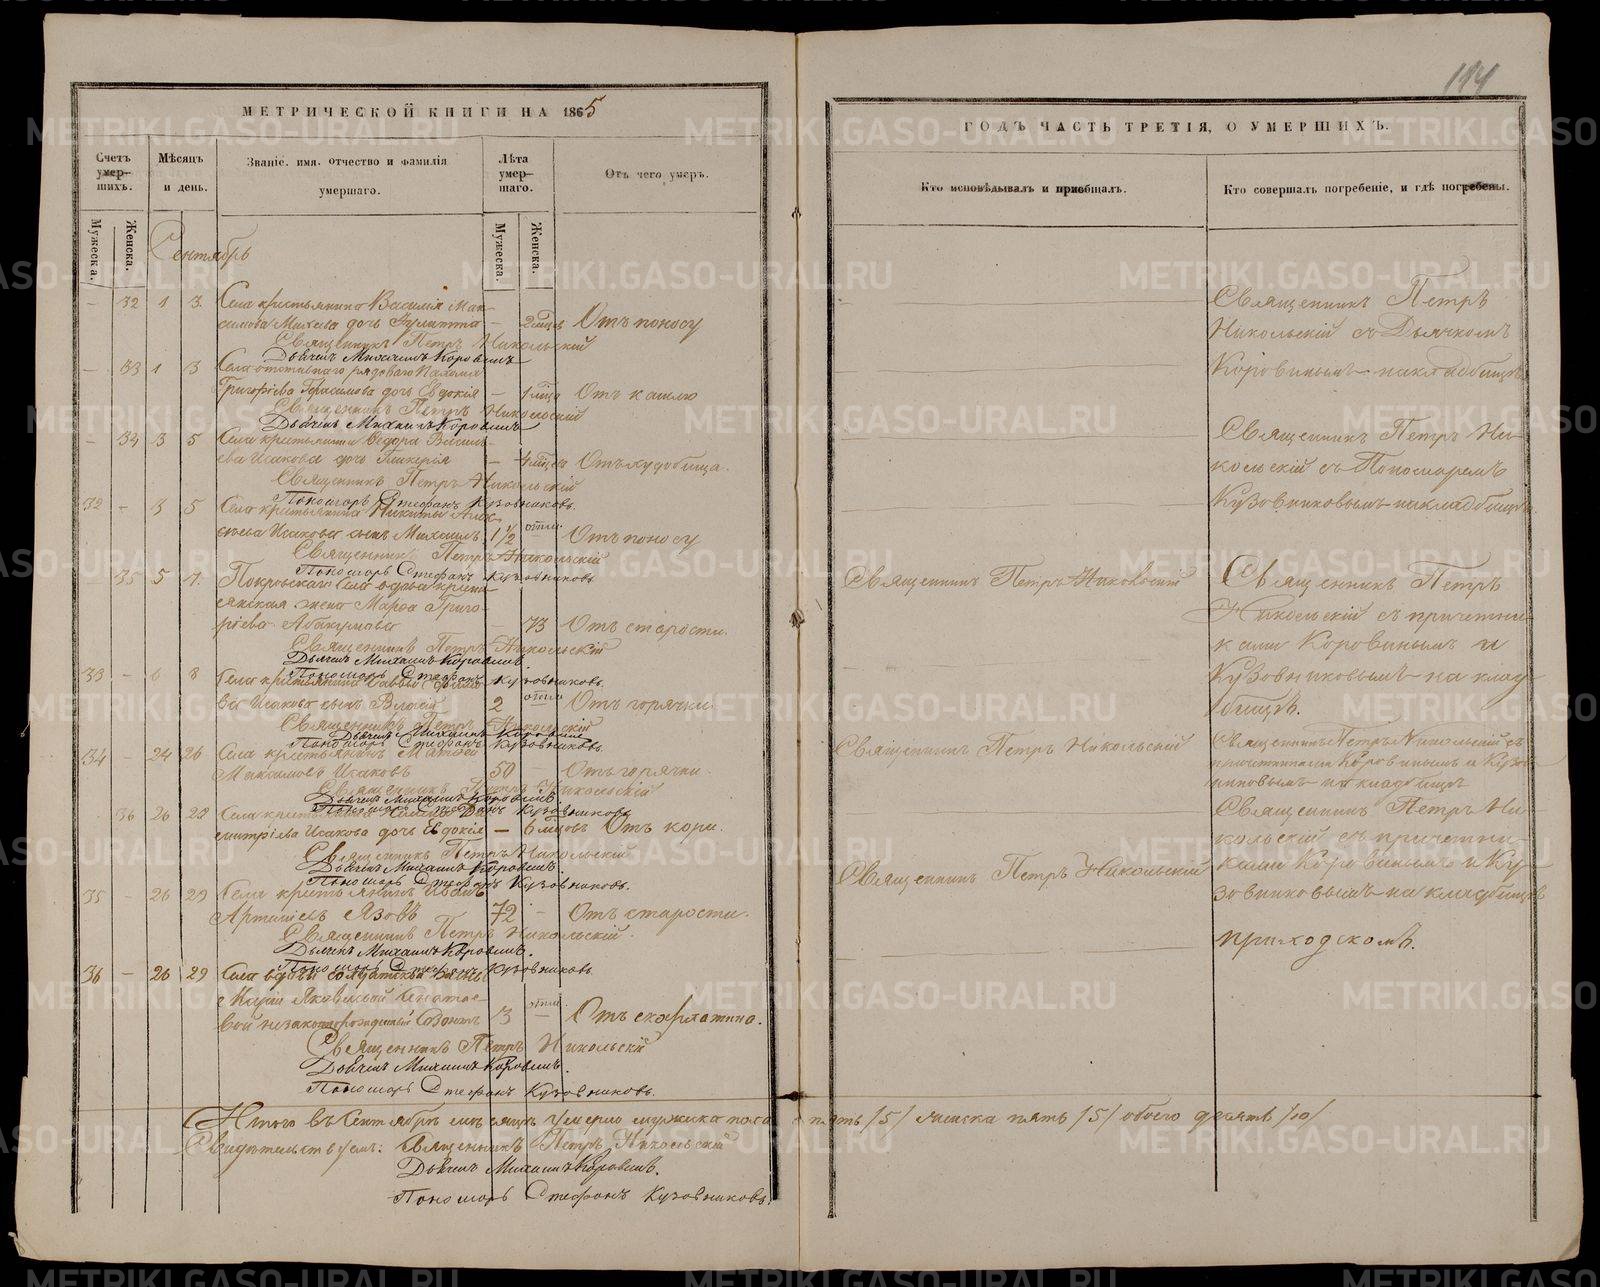 114
МЕТРИЧЕСКОЙ КНИГИ НА 1865
ГОДЪ ЧАСТЬ ТРЕТІЯ, О УМЕРШИХЪ.
Счетъ умер-шихъ.
Мѣсяцъ и день.
Званіе, имя, отчество и фамилія умершаго.
Лѣта умер-шаго.
Отъ чего умеръ.
Кто исповѣдывалъ и пріобщалъ.
Кто совершалъ погребеніе, и гдѣ погребены.
Мужеска.
Женска.
Мужеска.
Женска.
Сентябрь
– 32 1 3 Села крестьянина Василія Мак-
симова Михеева дочь – 2 мцов Отъ поносу
Священникъ Петръ Никольскій
Дьячекъ Михаилъ Коровинъ
Священникъ Петръ
Никольскій съ Дьячкомъ
Коровинымъ на кладбищѣ
– 33 1 3 Села рядоваго
Григоріева Герасимова дочь Евдокія – 1 мца Отъ кашлю
Священникъ Петръ Никольскій
Дьячекъ Михаилъ Коровинъ
– 34 3 5 Села крестьянина Ѳедора Василь-
ева Исакова дочь Гликерія – 4 мцов Отъ худобища.
Священникъ Петръ Никольскій
Пономарь Стефанъ Кузовниковъ.
Священникъ Петръ Ни-
кольскій съ Пономаремъ
Кузовниковымъ на кладбищѣ
32 – 3 5 Села крестьянина Никиты
Исакова сынъ Михаилъ 1 1/2 Отъ поносу
Священникъ Петръ Никольскій
Пономарь Стефанъ Кузовниковъ
– 35 5 7 Покровскаго села
жена Марѳа Григо-
ріева Абакумова – 73 Отъ старости.
Священникъ Петръ Никольскій
Дьячекъ Михаилъ Коровинъ.
Пономарь Стефанъ Кузовниковъ.
Священникъ Петръ Никольскій
Священникъ Петръ
Никольскій съ причетни-
ками Коровинымъ и
Кузовниковымъ на клад-
бищѣ.
33 – 6 8 Села крестьянина Саввы
ва Исакова сынъ 2 Отъ горячки.
Священникъ Петръ Никольскій
Дьячекъ Михаилъ Коровинъ
Пономарь Стефанъ Кузовниковъ
34 – 24 26 Села крестьянинъ Матвей
Максимовъ Исаковъ 50 – Отъ горячки.
Священникъ Петръ Никольскій
Дьячекъ Михаилъ Коровинъ
Пономарь Стефанъ Кузовниковъ
Священникъ Петръ Никольскій
Священникъ Петръ Никольскій съ
причетниками Коровинымъ и Кузов-
никовымъ на кладбищѣ
– 36 26 28 Села крестьянина
митріева Исакова дочь Евдокія – 6 мцовъ Отъ кори.
Священникъ Петръ Никольскій
Дьячекъ Михаилъ Коровинъ.
Пономарь Стефанъ Кузовниковъ.
Священникъ Петръ Ни-
кольскій съ причетни-
ками Коровинымъ и Ку-
зовниковымъ на кладбищѣ
приходскомъ.
35 – 26 29 Села крестьянинъ Иванъ
Артемьевъ Язовъ 72 – Отъ старости.
Священникъ Петръ Никольскій.
Дьячекъ Михаилъ Коровинъ.
Пономарь Стефанъ Кузовниковъ.
Священникъ Петръ Никольскій
36 – 26 29 Села вдовы солдатской жены
Маріи Яковлевой Игнатье-
вой незаконнорожденный Созонтъ 3 – Отъ скарлатина.
Священникъ Петръ Никольскій
Дьячекъ Михаилъ Коровинъ.
Пономарь Стефанъ Кузовниковъ.
Итого въ Сентябрѣ мѣсяцѣ умерло мужска пола пять /5/ женска пять /5/ обоего десять /10/
Свидѣтельствуемъ: Священникъ Петръ Никольскій
Дьячекъ Михаилъ Коровинъ.
Пономарь Стефанъ Кузовниковъ.
METRIKI.GASO-URAL.RU